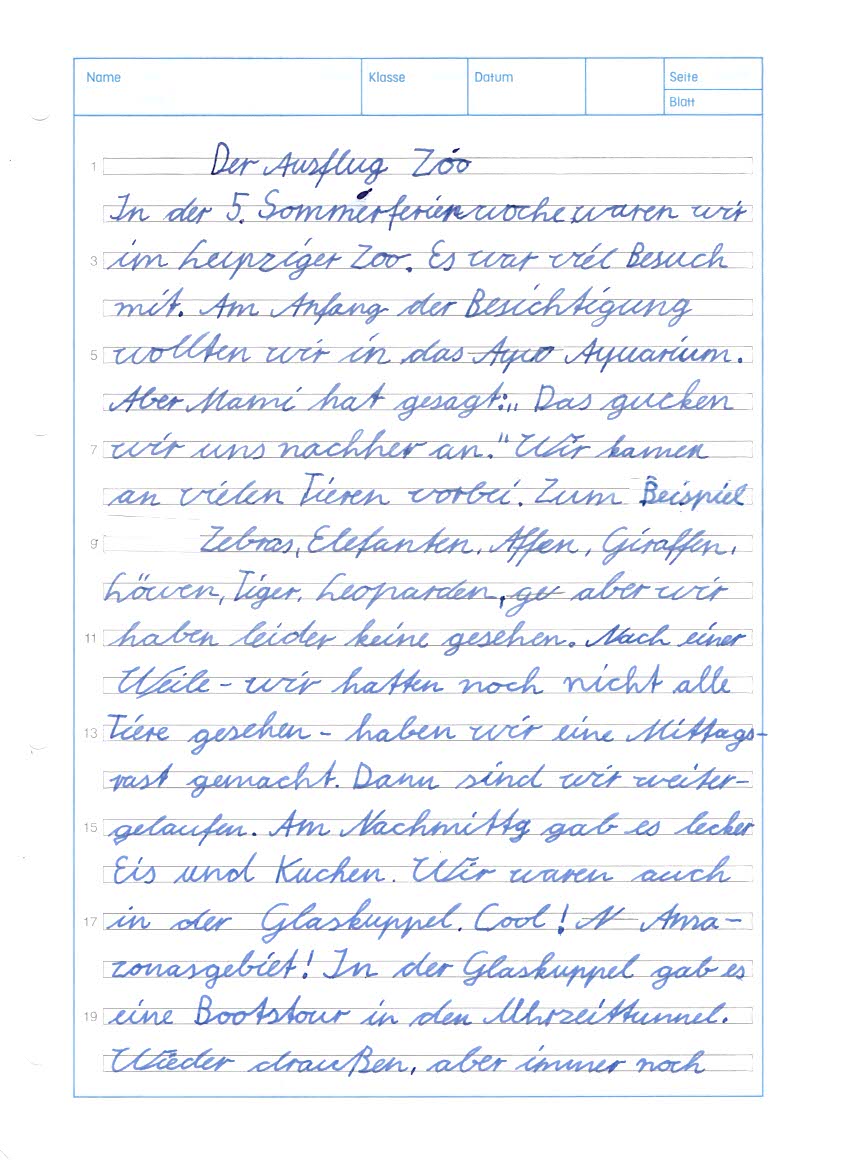 Name Klasse Datum Seite
Blatt
1 Der Ausflug Zoo
In der 5. Sommerferienwoche waren wir
3 im Leipziger Zoo. Es war viel Besuch
mit. Am Anfang der Besichtigung
5 wollten wir in das Aqua Aquarium.
Aber Mami hat gesagt: „Das gucken
7 wir uns nachher an." Wir kamen
an vielen Tieren vorbei. Zum Beispiel
9 Zebras, Elefanten, Affen, Giraffen,
Löwen, Tiger, Leoparden, ge aber wir
11 haben leider keine gesehen. Nach einer
Weile - wir hatten noch nicht alle
13 Tiere gesehen - haben wir eine Mittags-
rast gemacht. Dann sind wir weiter-
15 gelaufen. Am Nachmittg gab es lecker
Eis und Kuchen. Wir waren auch
17 in der Glaskuppel. Cool! N Ama-
zonasgebiet! In der Glaskuppel gab es
19 eine Bootstour in den Uhrzeittunnel.
Wieder draußen, aber immer noch